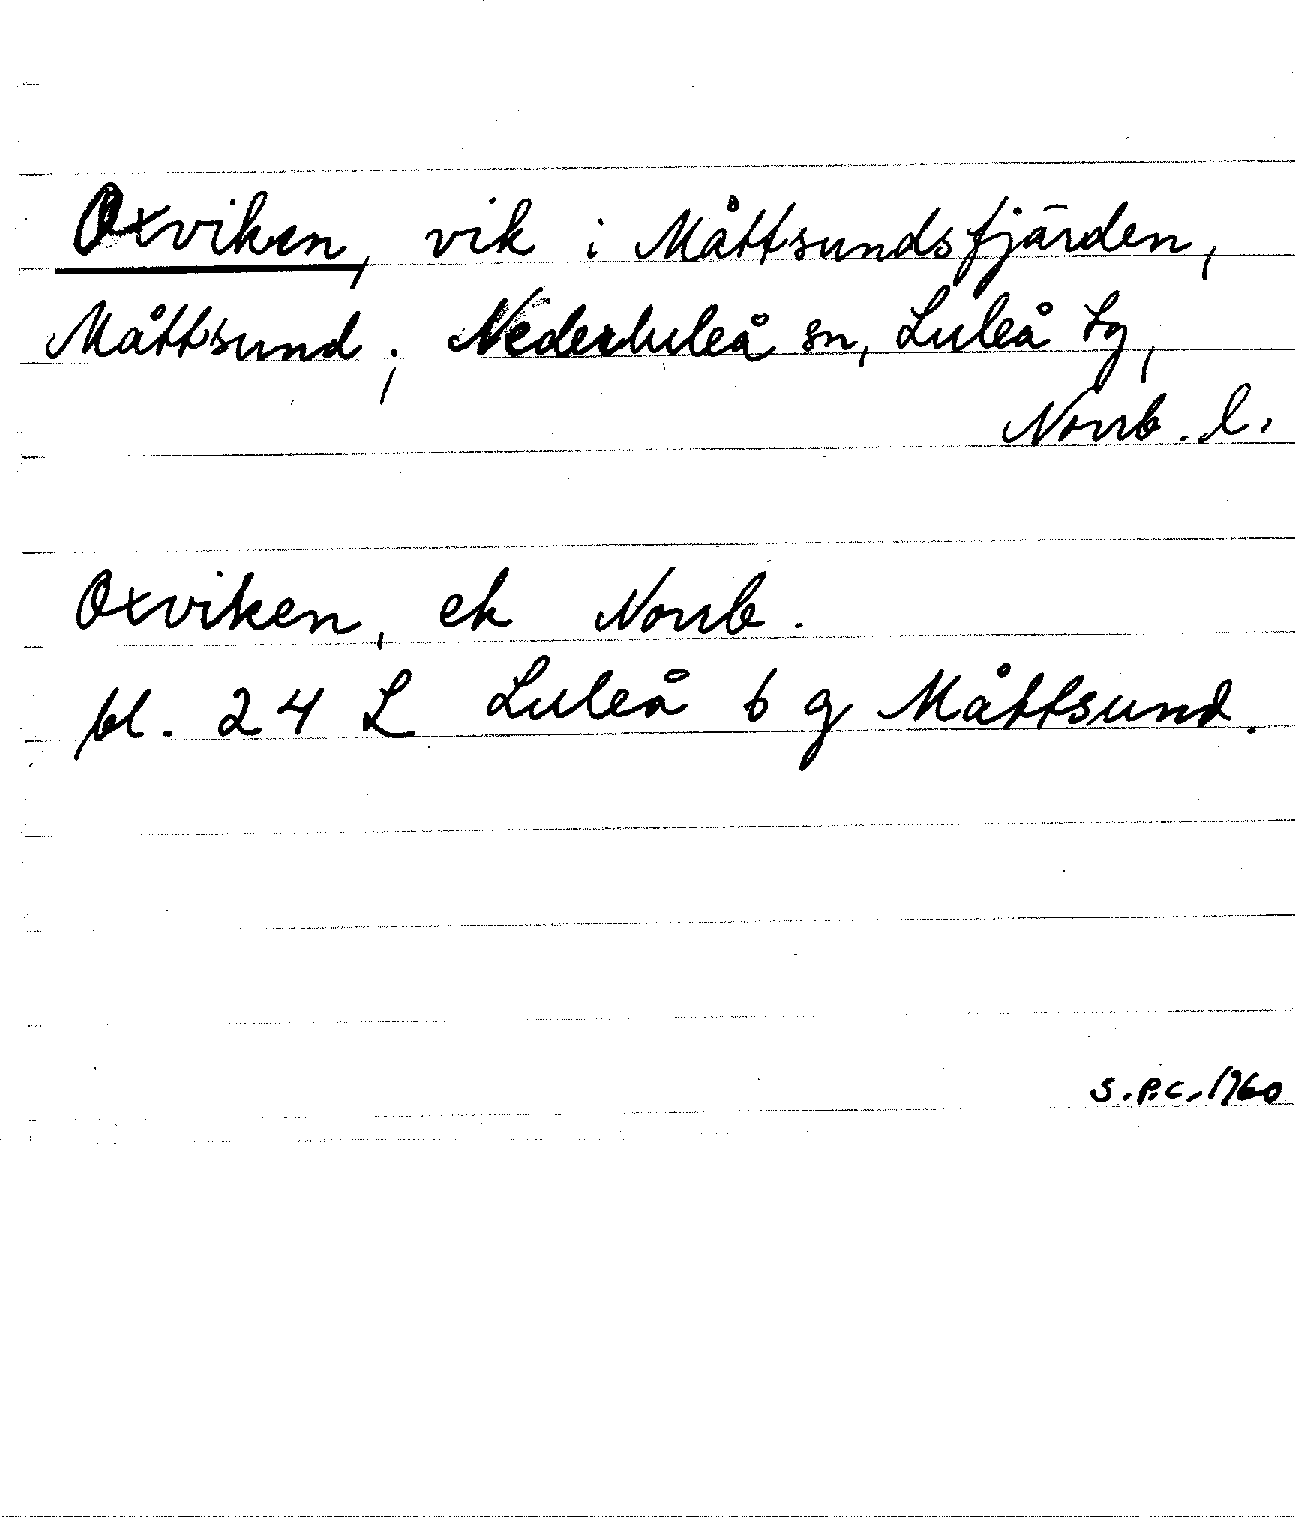 Oxviken, vik i Måttsundsfjärden,
Måttsund; Nederluleå sn, Luleå tg,
Norrb. l.
Oxviken, ek Norrb.
bl. 24 L Luleå 6 g Måttsund.
S.P.C. 1960